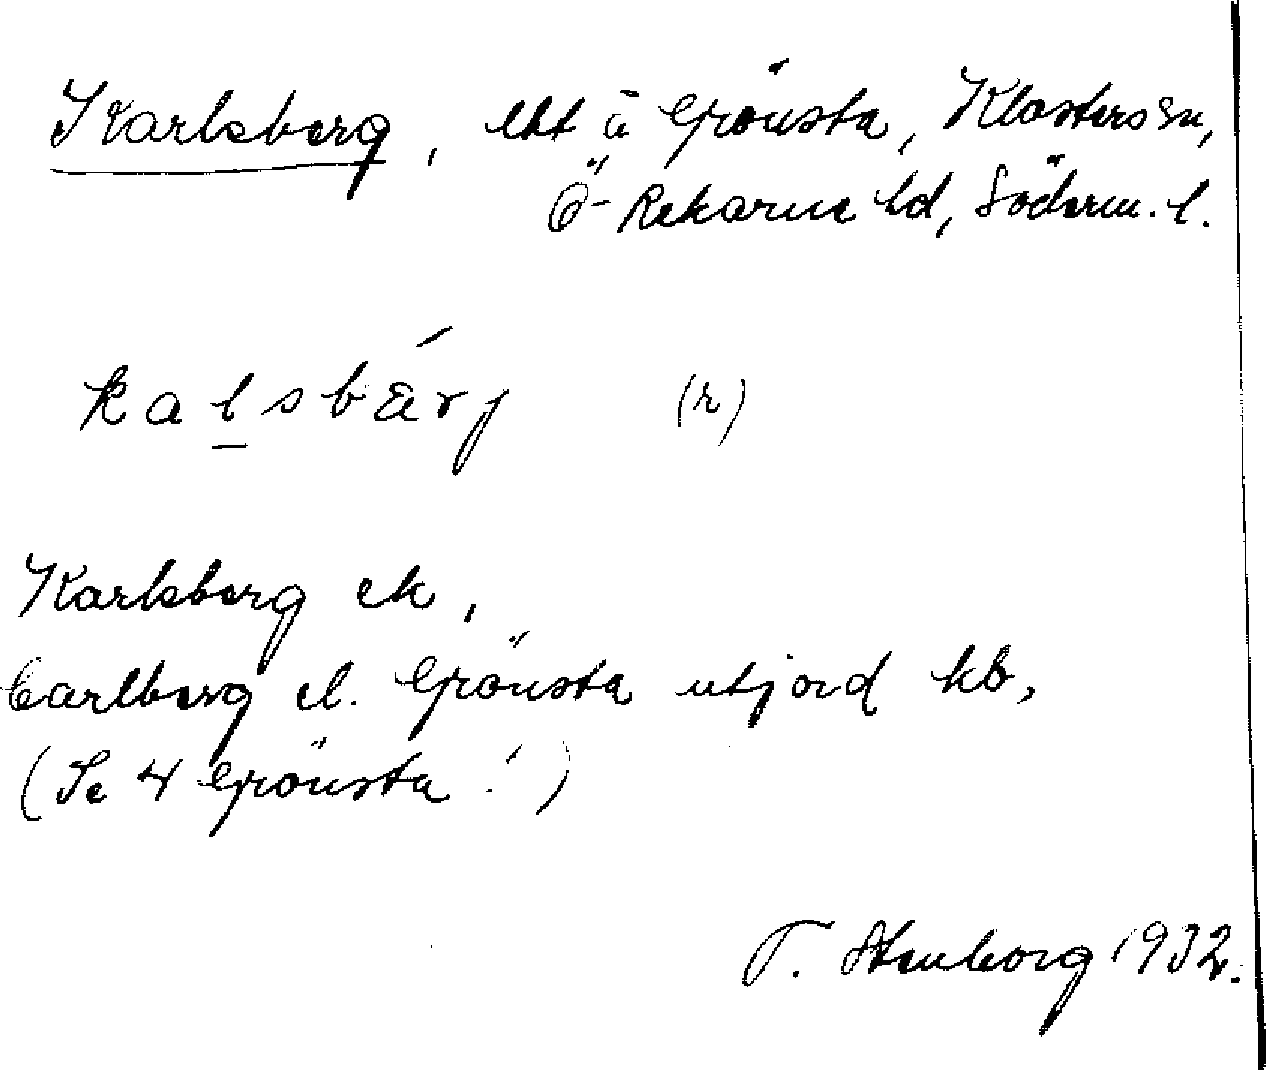 Karlsberg, lht å Grönsta, Klosters sn,
Ö-Rekarne hd, Söderm. l.
kalsbärj (r)
Karlsberg ek,
Carlberg el. Grönsta utjord kb,
(Se 4 Grönsta!)
T. Stenborg 1932.